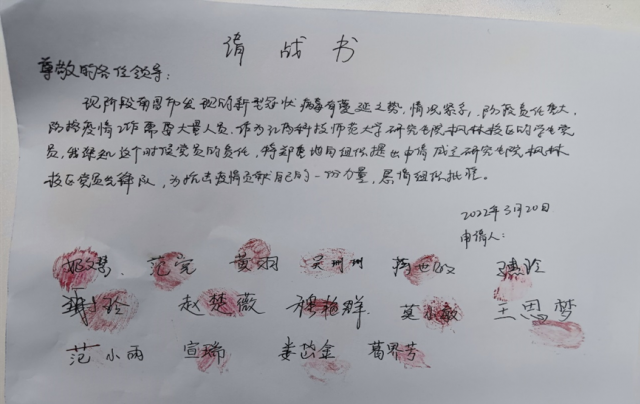 请战书
尊敬的各位领导：
现阶段南昌市发现的新型冠状病毒有蔓延之势，情况紧急，防控责任重大，
防控疫情工作需要大量人员，作为江西科技师范大学研究生院枫林校区的学生党
员，我深知这个时候党员的责任，特郑重地向组织提出申请成立研究生院枫林
校区党员先锋队，为抗击疫情贡献自己的一份力量，恳请组织批准。
2022年3月20日
申请人：
范完 黄翔 吴州州
赵楚薇 穆艳群 莫小敏 王思梦
范小雨 宣瑞 娄芷金 葛界芳